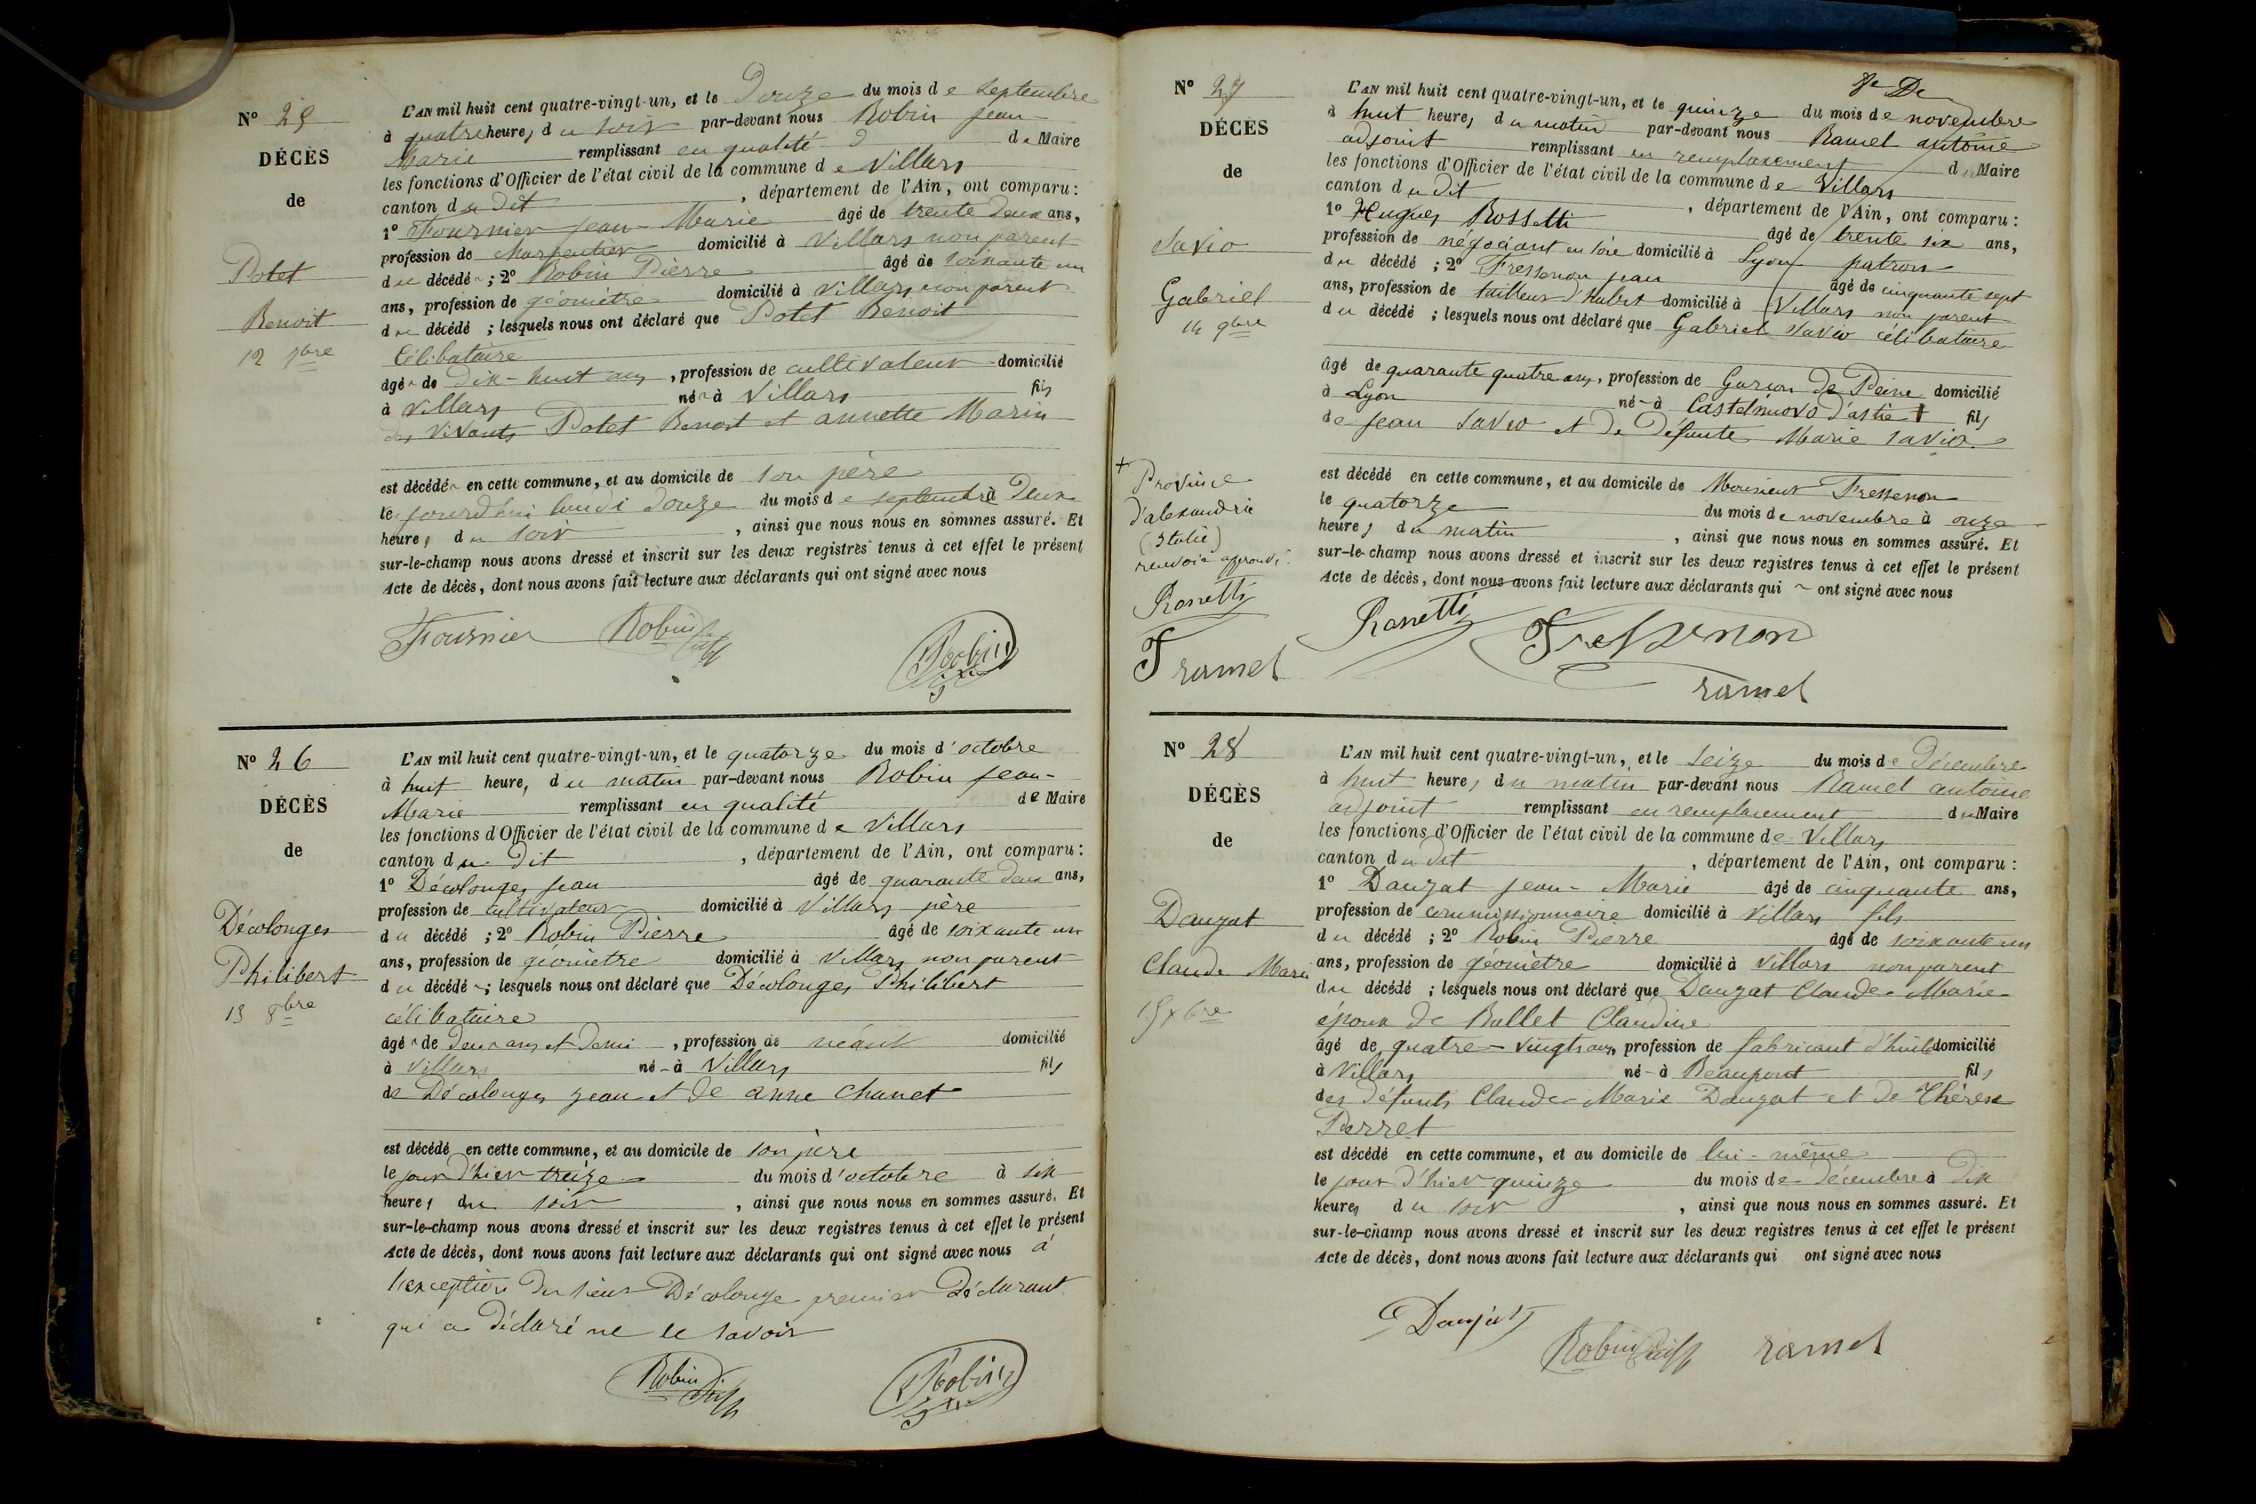 N° 25
DÉCÈS
de
Potet
Benoit
12 7bre
L'AN mil huit cent quatre-vingt-un, et le Douze du mois de septembre
à quatre heures du soir par-devant nous Robin Jean
Marie remplissant en qualité de Maire
les fonctions d'Officier de l'état civil de la commune de Villars
canton du dit, département de l'Ain, ont comparu :
1° Fournier Jean-Marie âgé de trente deux ans,
profession de charpentier domicilié à Villars non parent
du décédé ; 2° Robin Pierre âgé de soixante un
ans, profession de géomètre domicilié à Villars non parent
du décédé ; lesquels nous ont déclaré que Potet Benoit
Célibataire
âgé de dix-huit ans, profession de cultivateur domicilié
à Villars né à Villars fils
des vivants Potet Benoit et annette Marin
est décédé en cette commune, et au domicile de son père
le jourd'hui lundi douze du mois de septembre à deux
heures du soir, ainsi que nous nous en sommes assuré. Et
sur-le-champ nous avons dressé et inscrit sur les deux registres tenus à cet effet le présent
Acte de décès, dont nous avons fait lecture aux déclarants qui ont signé avec nous
Fournier Robin Robin
N° 26
DÉCÈS
de
Décolonges
Philibert
13 8bre
L'AN mil huit cent quatre-vingt-un, et le quatorze du mois d'octobre
à huit heures, du matin par-devant nous Robin Jean-
Marie remplissant en qualité de Maire
les fonctions d'Officier de l'état civil de la commune de Villars
canton du dit, département de l'Ain, ont comparu :
1° Décolonges Jean âgé de quarante deux ans,
profession de cultivateur domicilié à Villars père
du décédé ; 2° Robin Pierre âgé de soixante un
ans, profession de géomètre domicilié à Villars non parent
du décédé ; lesquels nous ont déclaré que Décolonges Philibert
célibataire
âgé de deux ans et demi, profession de néant domicilié
à Villars né à Villars fils
de Décolonges Jean et de anne Chanet
est décédé en cette commune, et au domicile de son père
le jour d'hier treize du mois d'octobre à six
heures du soir, ainsi que nous nous en sommes assuré. Et
sur-le-champ nous avons dressé et inscrit sur les deux registres tenus à cet effet le présent
Acte de décès, dont nous avons fait lecture aux déclarants qui ont signé avec nous à
l'exception du sieur Décolonge premier Déclarant
qui a déclaré ne le savoir
Robin Robin
N° 27
DÉCÈS
de
Savio
Gabriel
14 9bre
L'AN mil huit cent quatre-vingt-un, et le quinze du mois de novembre
à huit heures, du matin par-devant nous Ramel antoine
adjoint remplissant en remplacement du Maire
les fonctions d'Officier de l'état civil de la commune de Villars
canton du dit, département de l'Ain, ont comparu :
1° Hugues Rossetti âgé de trente six ans,
profession de négociant en soie domicilié à Lyon patron
du décédé ; 2° Fressenon Jean âgé de cinquante sept
ans, profession de tailleur d'habit domicilié à Villars non parent
du décédé ; lesquels nous ont déclaré que Gabriel Savio célibataire
âgé de quarante quatre ans, profession de Garçon de Peine domicilié
à Lyon né à Castelnuovo d'astie + fils
de Jean Savio et de Défunte Marie Savio
est décédé en cette commune, et au domicile de Monsieur Fressenon
le quatorze du mois de novembre à onze
heures du matin, ainsi que nous nous en sommes assuré. Et
sur-le-champ nous avons dressé et inscrit sur les deux registres tenus à cet effet le présent
Acte de décès, dont nous avons fait lecture aux déclarants qui ont signé avec nous
+ Province
d'alexandrie
(Italie)
renvoie approuvé
Rossetti
F ramel
Rossetti Fressenon
ramel
N° 28
DÉCÈS
de
Dauzat
Claude Marie
15 xbre
L'AN mil huit cent quatre-vingt-un, et le seize du mois de Décembre
à huit heures, du matin par-devant nous Ramel antoine
adjoint remplissant en remplacement du Maire
les fonctions d'Officier de l'état civil de la commune de Villars
canton du dit, département de l'Ain, ont comparu :
1° Dauzat Jean-Marie âgé de cinquante ans,
profession de commissionnaire domicilié à Villars fils
du décédé ; 2° Robin Pierre âgé de soixante un
ans, profession de géomètre domicilié à Villars non parent
du décédé ; lesquels nous ont déclaré que Dauzat Claude-Marie
époux de Ballet Claudine
âgé de quatre-vingts ans, profession de fabricant d'huile domicilié
à Villars né à Beaupont fils
des défunts Claude-Marie Dauzat et de Thérèse
Perret
est décédé en cette commune, et au domicile de lui-même
le jour d'hier quinze du mois de décembre à dix
heures du soir, ainsi que nous nous en sommes assuré. Et
sur-le-champ nous avons dressé et inscrit sur les deux registres tenus à cet effet le présent
Acte de décès, dont nous avons fait lecture aux déclarants qui ont signé avec nous
Dauzat
Robin ramel